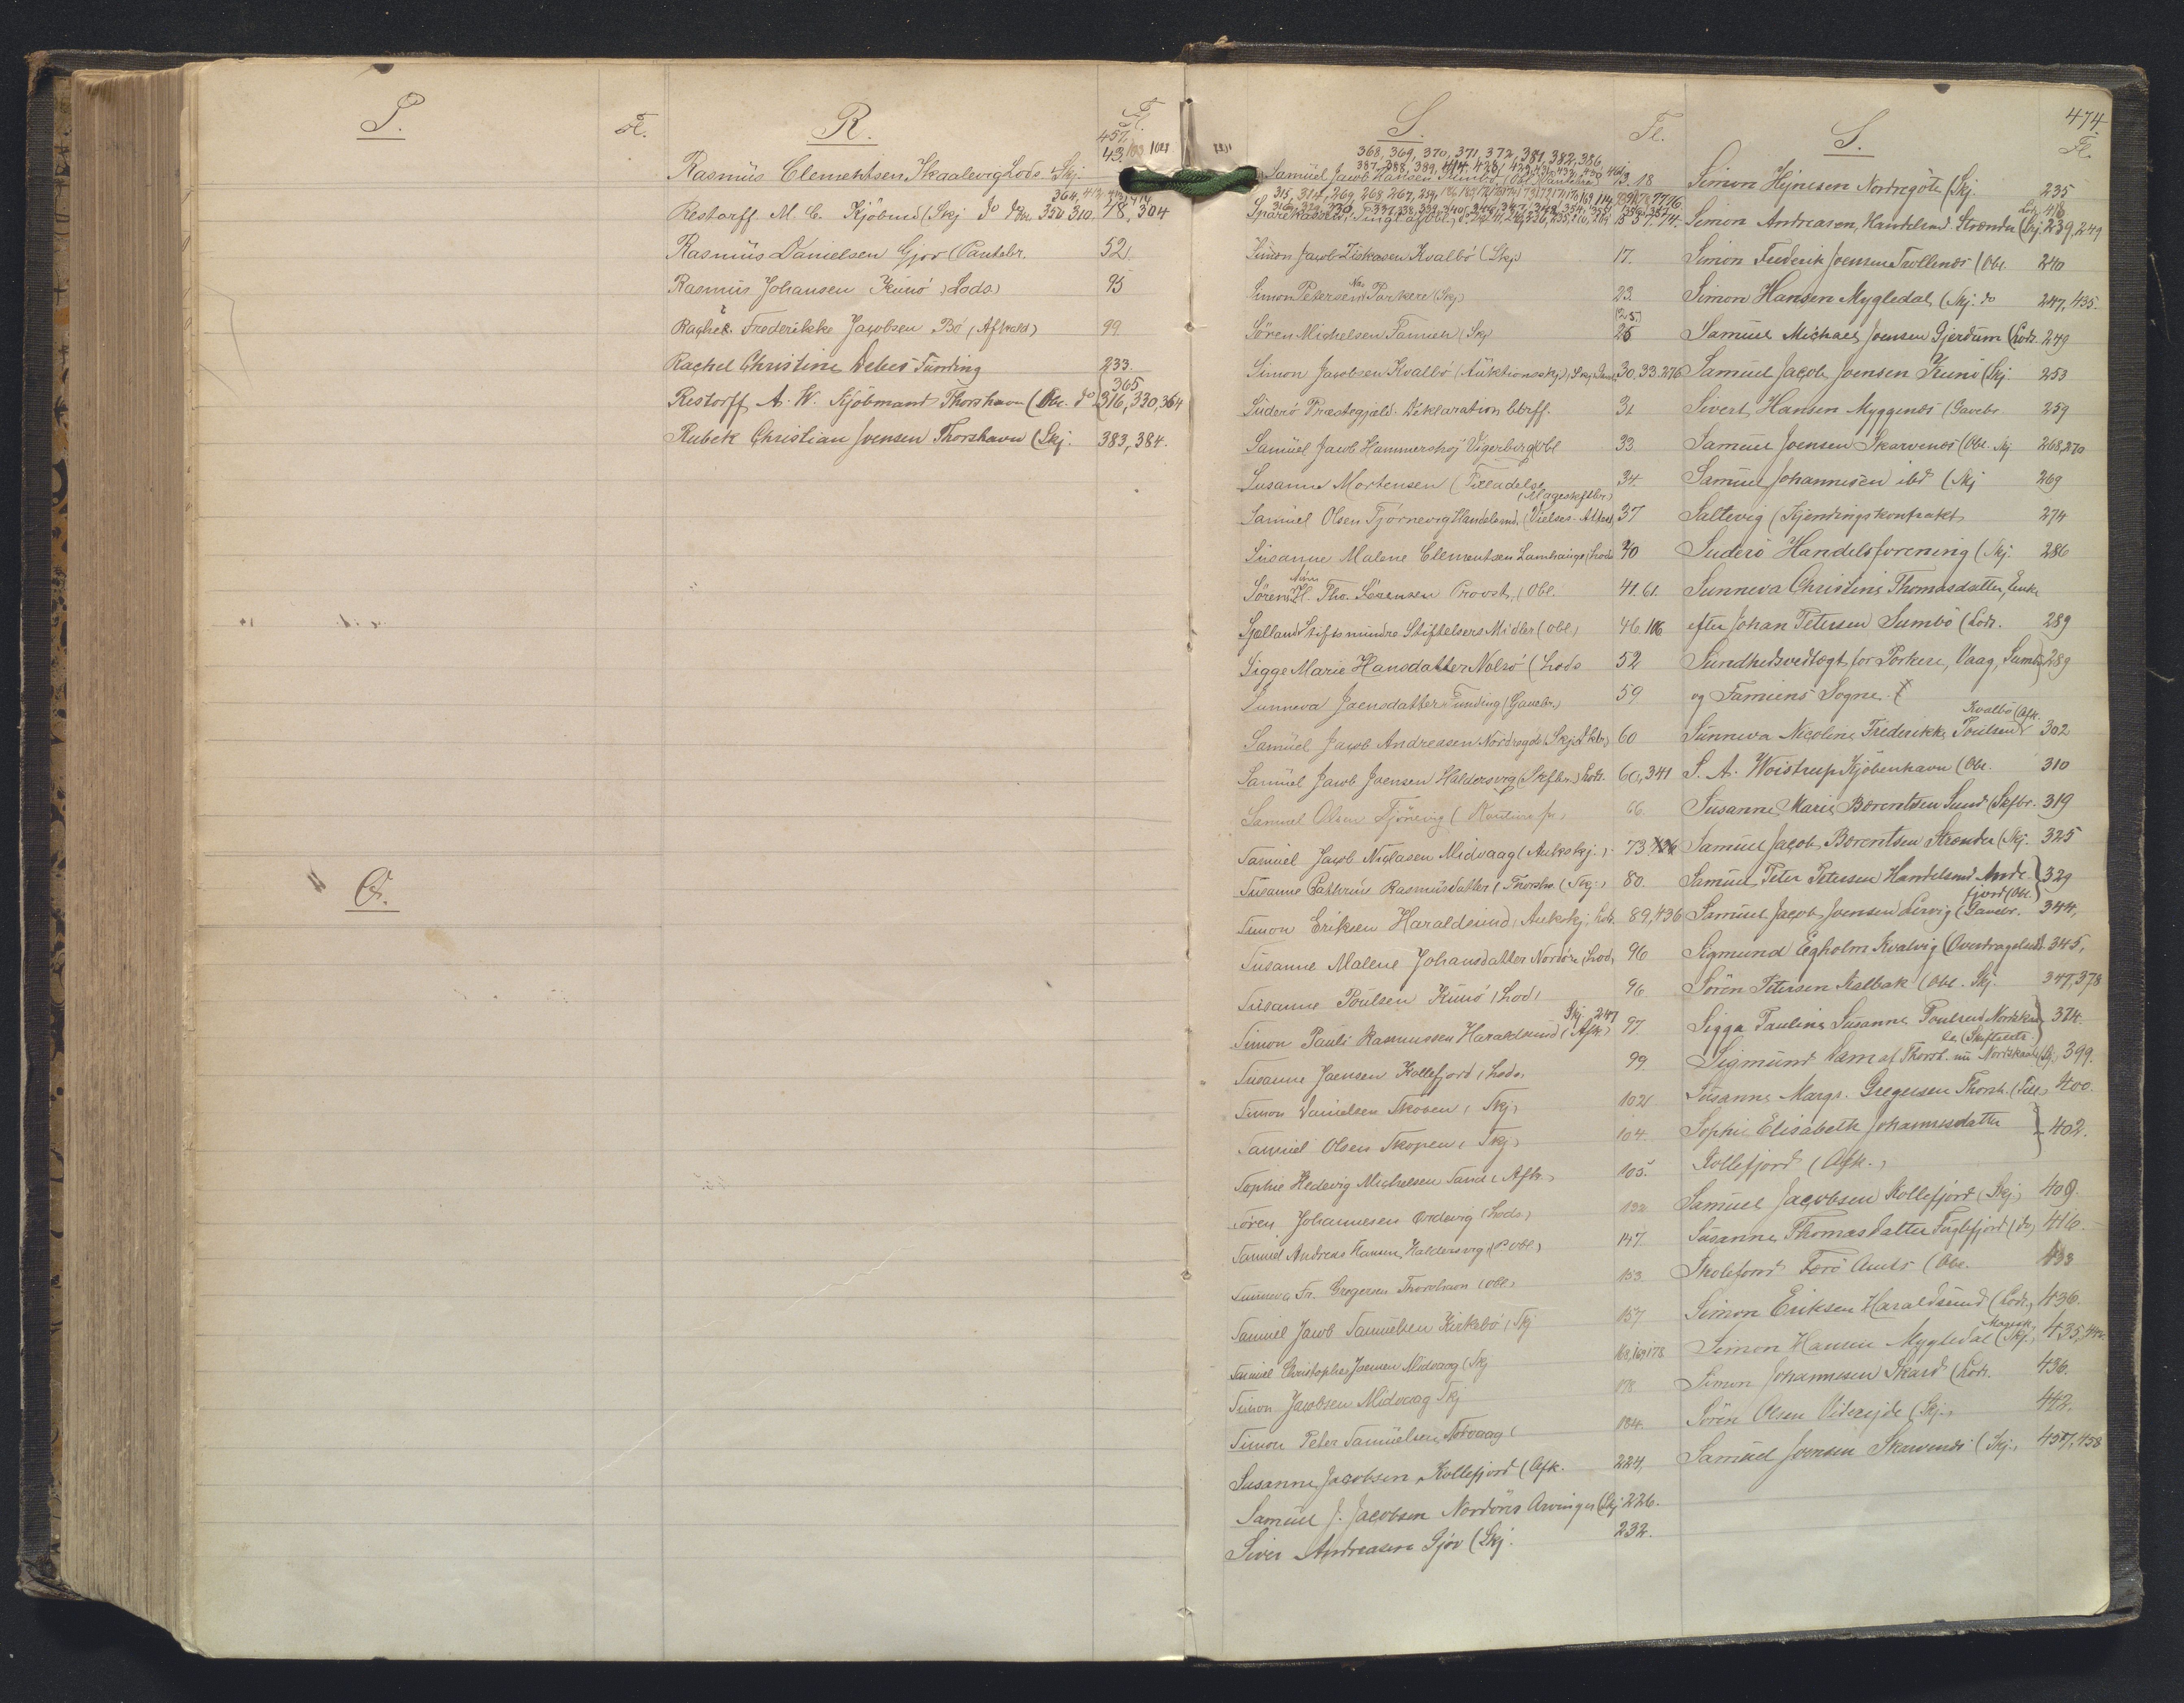 P.
Fl.
Q.
R.
Fl.
457,
43, 103 102
Rasmus Clementsen Skaalevig Lods. Skj.
364, 412, 413, 414
Restorff M. C. Kjöbmd (Skj. do do Obl. 350 310, 48, 304
Rasmus Danielsen Gjov (Pantebr. 52
Rasmus Johansen Kunö (Lods) 95
Rachel Frederikke Jacobsen Bö (Afkald) 99
Rachel Christine Debes Funding 233
365
Restorff A. W. Kjöbmand Thorshavn (Obl. do 316, 330, 364
Rubek Christian Joensen Thorshavn (Skj. 383, 384.
S.
Fl.
368, 369, 370, 371, 372, 381, 382, 386,
387, 388, 389, 414, 428,
Samuel Jacob Hansen 13. 18
315, 314, 269, 268, 267, 259,
Sparekassen
Simon Jacob Ziskasen Kvalbö (Skj) 17.
Simon Petersen Næs Porkere (Skj) 23.
Sören Michelsen Famien (Skj 25
Simon Jacobsen Kvalbö (Auktionsskj), Skj 30, 33, 276
Süderö Præstegjæld. Deklaration 31
Samuel Jacob Hammershøj Vigerberg (Obl 33
Susanne Mortensen (Tilladelse 34.
(Mageskiftbr.)
Samuel Olsen Tjörnevig Handelsmd. (Vielses-Attest, 37
Susanne Malene Clementsen Lamhauge (Lods 40
Sören H. Tho. Sörensen Provst, (Obl. 41. 61.
Sjællands Stifts mindre Stiftelsers Midler (obl.) 46. 106
Sigge Marie Hansdatter Nolsö (Lods 52
Sunneva Joensdatter Funding (Gavebr.) 59
Samuel Jacob Andreasen Nordregöte (Skj. 60
Samuel Jacob Joensen Haldersvig (Skftbr.) Lods. 60, 341
Samuel Olsen Tjörnevig ( 66.
Samuel Jacob Niclasen Midvaag (Aukskj.) 73.
Susanne Cathrine Rasmusdatter (Thorsh. (Skj.) 80.
Simon Eriksen Haraldsund, Aukskj. Lods. 89, 436
Susanne Malene Johansdatter Nordöre (Lods) 96
Susanne Poulsen Kunö (Lod) 96
Skj. 247
Simon Pauli Rasmussen Haraldsund (Afk.) 97
Susanne Joensen Kollefjord (Lods) 99.
Simon Danielsen Skoven (Skj) 102
Samuel Olsen Skopen (Skj) 104.
Sophie Hedevig Michelsen Sand (Afk.) 105.
Sören Johannesen Ordevig (Lods) 132
Samuel Andreas Hansen Haldersvig (P. obl) 147.
Sunneva Fr. Gregersen Thorshavn (obl) 153.
Samuel Jacob Samuelsen Kirkebö (Skj 157
Samuel Christopher Joensen Midvaag (Skj 168, 169, 178
Simon Jacobsen Midvaag Skj 178
Simon Peter Samuelsen Sörvaag ( 184.
Susanne Jacobsen Kollefjord (Afk. 224,
Samuel J. Jacobsen Nordöres Arvinger (Skj 226.
Siver Andreasen Gjov (Skj. 232.
S.
474
Fl.
Simon Hejnesen Nordregöte (Skj. 235
Lods 418
Simon Andreasen, Handelsmd. Strænder (Skj. 239, 249
Simon Frederik Joensen Trollenæs (Obl. 240
Simon Hansen Mygledal, (Skj. do 247, 435.
Samuel Michael Joensen Gjerdum (Lods. 249
Samuel Jacob Joensen Kunö (Skj. 253
Sivert Hansen Myggenæs (Gavebr. 259
Samuel Joensen Skarvenæs (Obl. Skj 268, 270
Samuel Johannesen ibd (Skj 269
Saltevig (Kjendingskontrakt 274
Suderö Handelsforening (Skj. 286
Sunneva Christine Thomasdatter, Enke
efter Johan Petersen Sumbö (Lods. 289
Sundhedsvedtægt for Porkere, Vaag, Sumbö 289
og Famiens Sogne.
Kvalbö (Afk.
Sunneva Nicoline Frederikke Poulsen 302
S. A. Woistrup Kjöbenhavn (Obl. 310
Susanne Marie Berentsen Sund (Skftbr. 319
Samuel Jacob Berentsen Strænder (Skj. 325
Samuel Peter Petersen Handelsmd. Ande- 329
fjord (Obl.
Samuel Jacob Joensen Lervig (Gavebr. 344,
Sigmund Egholm Kvalvig (Overdragelsesd. 345,
Sören Petersen Kalbak (Obl. Skj. 347, 378
Sigga Pauline Susanne Poulsen Nordskaa 374.
le, (Skifteextr.)
Sigmund Dam af Thorsh. nu Nordskaale (Skj. 399.
Susanne Margr. Gregersen Thorsh. (Till, 400.
Sophie Elisabeth Johannesdatter 402.
Kollefjord (Afk.)
Samuel Jacobsen Kollefjord (Skj) 409.
Susanne Thomasdatter Fuglefjord (do) 416.
Skolefond Færö Amts (Obl. 433
Simon Eriksen Haraldsund (Lods, 436.
Magesk.
Simon Hansen Mygledal (Skj., 435, 442.
Simon Johannesen Skard (Lods. 436.
Sören Olsen Videreide (Skj., 442.
Samuel Joensen Skarvenæs (Skj., 457, 458